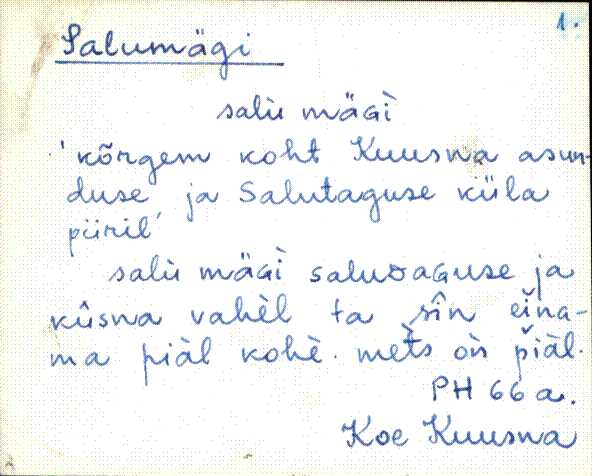 1.
Salumägi
salù mäGì
'kõrgem koht Kuusna asun-
duse ja Salutaguse küla
piiril'
salù mäGì saluDAGuse ja
kûsna vahèl ta sîn eìna-
ma piàl kohè. mèts òn piàl.
PH 66 a.
Koe Kuusna